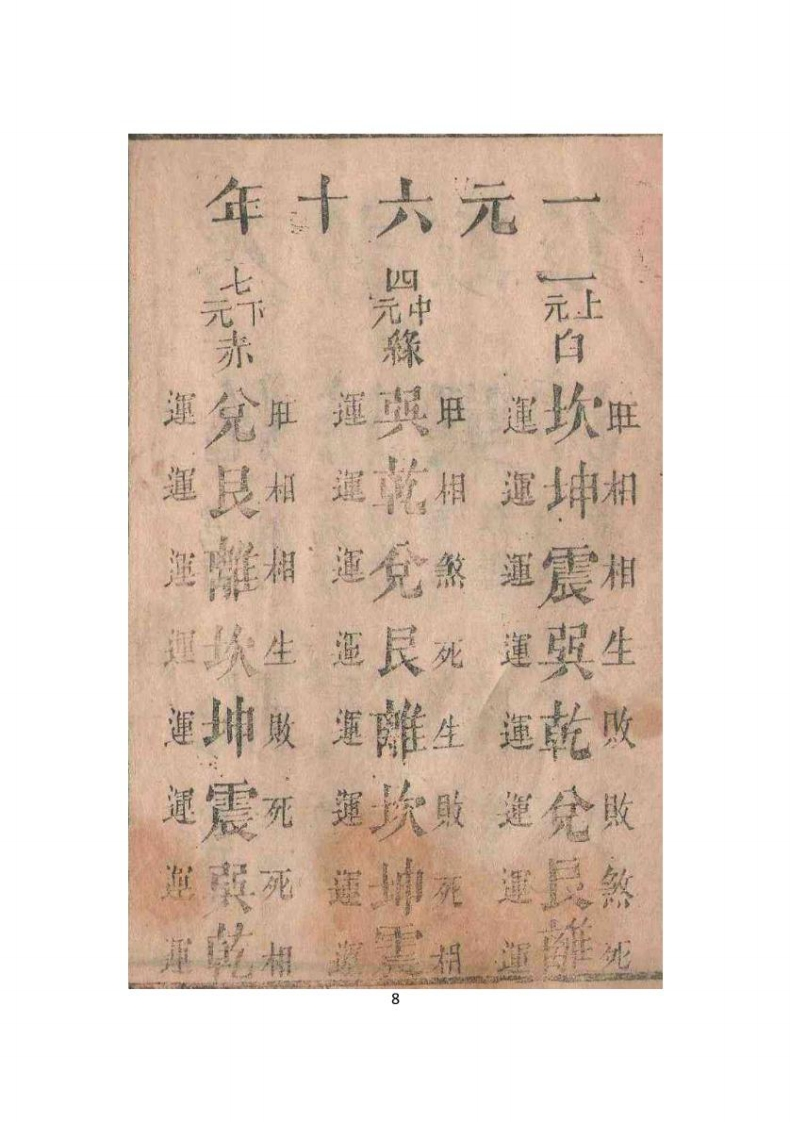 一元六十年
一上元白
旺坎運
相坤運
相震運
生巽運
敗乾運
敗兌運
煞艮運
死離運
四中元綠
旺巽運
相乾運
煞兌運
死艮運
生離運
敗坎運
死坤運
相震運
七下元赤
旺兌運
相艮運
相離運
生坎運
敗坤運
死震運
死巽運
相乾運
8